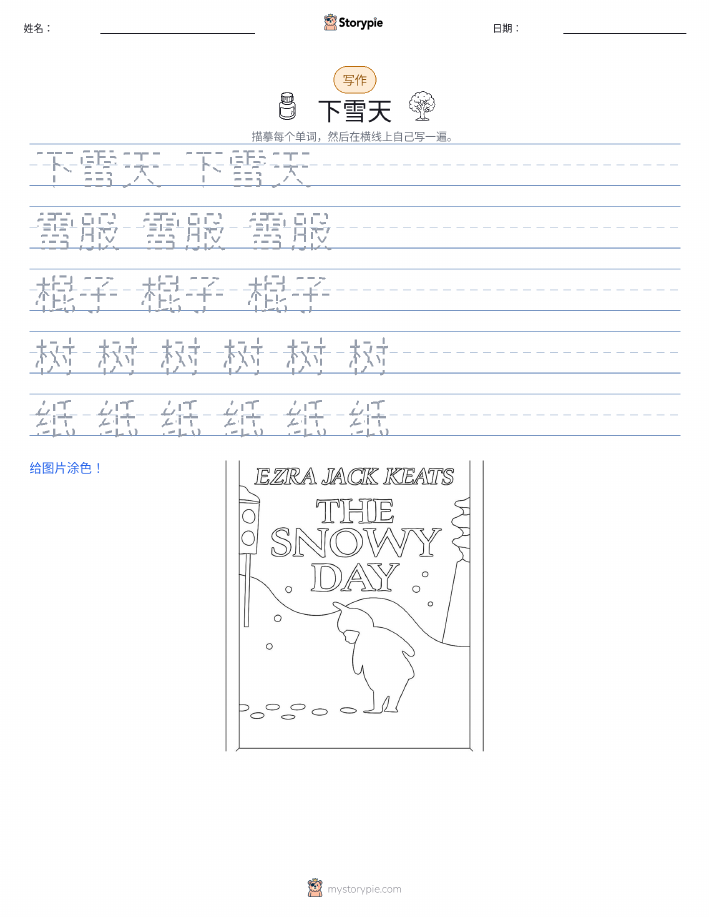 姓名： Storypie 日期：
写作
下雪天
描摹每个单词，然后在横线上自己写一遍。
下雪天 下雪天
雪服 雪服 雪服
棍子 棍子 棍子
树 树 树 树 树 树
纸 纸 纸 纸 纸 纸
给图片涂色！
EZRA JACK KEATS
THE
SNOWY
DAY
mystorypie.com